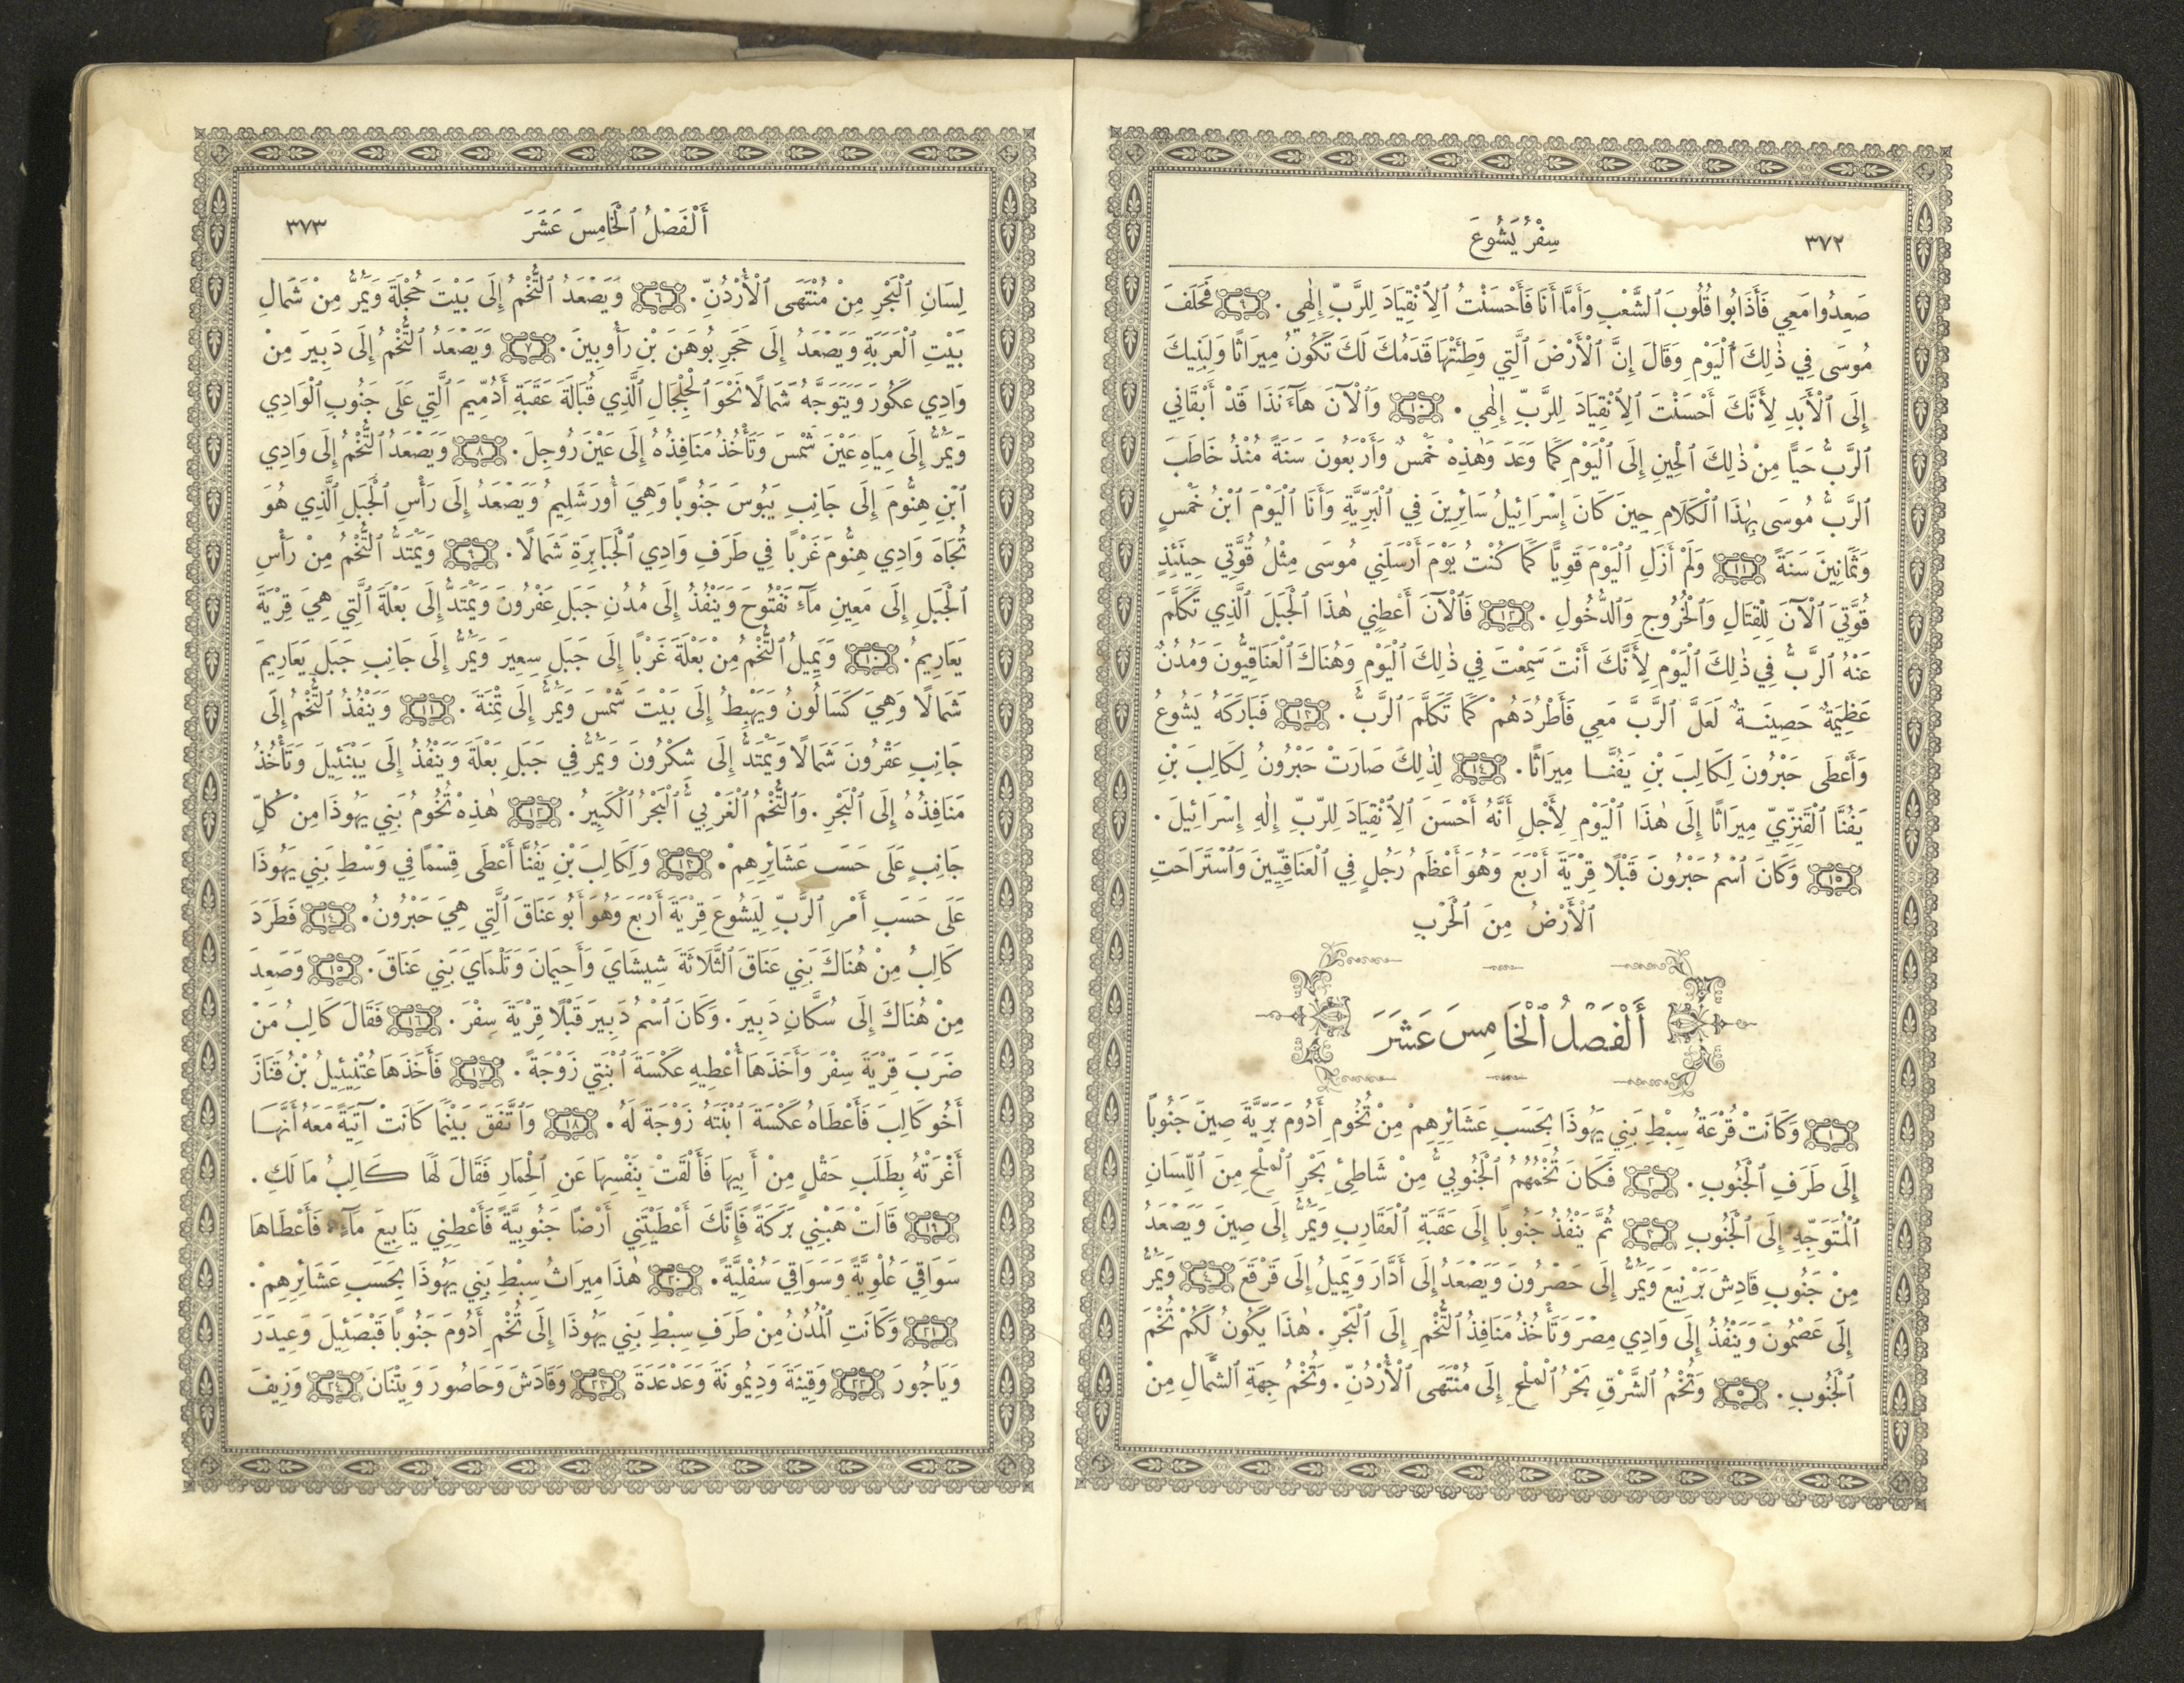 ٣٧٢ سِفْرُ يَشُوعَ
صَعِدُوا مَعِي فَأَذَابُوا قُلُوبَ ٱلشَّعْبِ وَأَمَّا أَنَا فَأَحْسَنْتُ ٱلِٱنْقِيَادَ لِلرَّبِّ إِلٰهِي . ٩ فَحَلَفَ
مُوسَى فِي ذٰلِكَ ٱلْيَوْمِ وَقَالَ إِنَّ ٱلْأَرْضَ ٱلَّتِي وَطِئَتْهَا قَدَمُكَ لَكَ تَكُونُ مِيرَاثًا وَلِبَنِيكَ
إِلَى ٱلْأَبَدِ لِأَنَّكَ أَحْسَنْتَ ٱلِٱنْقِيَادَ لِلرَّبِّ إِلٰهِي . ١٠ وَٱلْآنَ هَآءَنَذَا قَدْ أَبْقَانِي
ٱلرَّبُّ حَيًّا مِنْ ذٰلِكَ ٱلْحِينِ إِلَى ٱلْيَوْمِ كَمَا وَعَدَ وَهٰذِهْ خَمْسٌ وَأَرْبَعُونَ سَنَةً مُنْذُ خَاطَبَ
ٱلرَّبُّ مُوسَى بِهٰذَا ٱلْكَلَامِ حِينَ كَانَ إِسْرَائِيلُ سَائِرِينَ فِي ٱلْبَرِّيَّةِ وَأَنَا ٱلْيَوْمَ ٱبْنُ خَمْسٍ
وَثَمَانِينَ سَنَةً ١١ وَلَمْ أَزَلِ ٱلْيَوْمَ قَوِيًّا كَمَا كُنْتُ يَوْمَ أَرْسَلَنِي مُوسَى مِثْلُ قُوَّتِي حِينَئِذٍ
قُوَّتِيَ ٱلْآنَ لِلْقِتَالِ وَٱلْخُرُوجِ وَٱلدُّخُولِ . ١٢ فَٱلْآنَ أَعْطِنِي هٰذَا ٱلْجَبَلَ ٱلَّذِي تَكَلَّمَ
عَنْهُ ٱلرَّبُّ فِي ذٰلِكَ ٱلْيَوْمِ لِأَنَّكَ أَنْتَ سَمِعْتَ فِي ذٰلِكَ ٱلْيَوْمِ وَهُنَاكَ ٱلْعَنَاقِيُّونَ وَمُدُنٌ
عَظِيمَةٌ حَصِينَةٌ لَعَلَّ ٱلرَّبَّ مَعِي فَأَطْرُدَهُمْ كَمَا تَكَلَّمَ ٱلرَّبُّ . ١٣ فَبَارَكَهُ يَشُوعُ
وَأَعْطَى حَبْرُونَ لِكَالِبَ بْنِ يَفُنَّا مِيرَاثًا . ١٤ لِذٰلِكَ صَارَتْ حَبْرُونُ لِكَالِبَ بْنِ
يَفُنَّا ٱلْقَنِزِّيِّ مِيرَاثًا إِلَى هٰذَا ٱلْيَوْمِ لِأَجْلِ أَنَّهُ أَحْسَنَ ٱلِٱنْقِيَادَ لِلرَّبِّ إِلٰهِ إِسْرَائِيلَ .
١٥ وَكَانَ ٱسْمُ حَبْرُونَ قَبْلًا قِرْيَةَ أَرْبَعَ وَهُوَ أَعْظَمُ رَجُلٍ فِي ٱلْعَنَاقِيِّينَ وَٱسْتَرَاحَتِ
ٱلْأَرْضُ مِنَ ٱلْحَرْبِ
أَلْفَصْلُ ٱلْخَامِسَ عَشَرَ
١ وَكَانَتْ قُرْعَةُ سِبْطِ بَنِي يَهُوذَا بِحَسَبِ عَشَائِرِهِمْ مِنْ تُخُومِ أَدُومَ بَرِّيَّةَ صِينَ جَنُوبًا
إِلَى طَرَفِ ٱلْجَنُوبِ . ٢ فَكَانَ تُخْمُهُمُ ٱلْجَنُوبِيُّ مِنْ شَاطِئِ بَحْرِ ٱلْمِلْحِ مِنَ ٱللِّسَانِ
ٱلْمُتَوَجِّهِ إِلَى ٱلْجَنُوبِ ٣ ثُمَّ يَنْفُذُ جَنُوبًا إِلَى عَقَبَةِ ٱلْعَقَارِبِ وَيَمُرُّ إِلَى صِينَ وَيَصْعَدُ
مِنْ جَنُوبِ قَادِشَ بَرْنِيعَ وَيَمُرُّ إِلَى حَصْرُونَ وَيَصْعَدُ إِلَى أَدَّارَ وَيَمِيلُ إِلَى قَرْقَعَ ٤ وَيَمُرُّ
إِلَى عَصْمُونَ وَيَنْفُذُ إِلَى وَادِي مِصْرَ وَتَأْخُذُ مَنَافِذُ ٱلتُّخْمِ إِلَى ٱلْبَحْرِ . هٰذَا يَكُونُ لَكُمْ تُخْمَ
ٱلْجَنُوبِ . ٥ وَتُخْمُ ٱلشَّرْقِ بَحْرُ ٱلْمِلْحِ إِلَى مُنْتَهَى ٱلْأُرْدُنِّ . وَتُخْمُ جِهَةِ ٱلشَّمَالِ مِنْ
أَلْفَصْلُ ٱلْخَامِسَ عَشَرَ ٣٧٣
لِسَانِ ٱلْبَحْرِ مِنْ مُنْتَهَى ٱلْأُرْدُنِّ . ٦ وَيَصْعَدُ ٱلتُّخْمُ إِلَى بَيْتَ حُجْلَةَ وَيَمُرُّ مِنْ شَمَالِ
بَيْتِ ٱلْعَرَبَةِ وَيَصْعَدُ إِلَى حَجَرِ بُوهَنَ بْنِ رَأُوبِينَ . ٧ وَيَصْعَدُ ٱلتُّخْمُ إِلَى دَبِيرَ مِنْ
وَادِي عَكُورَ وَيَتَوَجَّهُ شَمَالًا نَحْوَ ٱلْجِلْجَالِ ٱلَّذِي قُبَالَةَ عَقَبَةِ أَدُمِّيمَ ٱلَّتِي عَلَى جَنُوبِ ٱلْوَادِي
وَيَمُرُّ إِلَى مِيَاهِ عَيْنَ شَمْسَ وَتَأْخُذُ مَنَافِذُهُ إِلَى عَيْنَ رُوجِلَ . ٨ وَيَصْعَدُ ٱلتُّخْمُ إِلَى وَادِي
ٱبْنِ هِنُّومَ إِلَى جَانِبِ يَبُوسَ جَنُوبًا وَهِيَ أُورَشَلِيمُ وَيَصْعَدُ إِلَى رَأْسِ ٱلْجَبَلِ ٱلَّذِي هُوَ
تُجَاهَ وَادِي هِنُّومَ غَرْبًا فِي طَرَفِ وَادِي ٱلْجَبَابِرَةِ شَمَالًا . ٩ وَيَمْتَدُّ ٱلتُّخْمُ مِنْ رَأْسِ
ٱلْجَبَلِ إِلَى مَعِينِ مَآءِ نَفْتُوحَ وَيَنْفُذُ إِلَى مُدُنِ جَبَلِ عَفْرُونَ وَيَمْتَدُّ إِلَى بَعْلَةَ ٱلَّتِي هِيَ قِرْيَةُ
يَعَارِيمُ . ١٠ وَيَمِيلُ ٱلتُّخْمُ مِنْ بَعْلَةَ غَرْبًا إِلَى جَبَلِ سِعِيرَ وَيَمُرُّ إِلَى جَانِبِ جَبَلِ يَعَارِيمَ
شَمَالًا وَهِيَ كَسَالُونُ وَيَهْبِطُ إِلَى بَيْتَ شَمْسَ وَيَمُرُّ إِلَى تِمْنَةَ . ١١ وَيَنْفُذُ ٱلتُّخْمُ إِلَى
جَانِبِ عَقْرُونَ شَمَالًا وَيَمْتَدُّ إِلَى شِكْرُونَ وَيَمُرُّ فِي جَبَلِ بَعْلَةَ وَيَنْفُذُ إِلَى يَبْنَئِيلَ وَتَأْخُذُ
مَنَافِذُهُ إِلَى ٱلْبَحْرِ . وَٱلتُّخْمُ ٱلْغَرْبِيُّ ٱلْبَحْرُ ٱلْكَبِيرُ . ١٢ هٰذِهْ تُخُومُ بَنِي يَهُوذَا مِنْ كُلِّ
جَانِبٍ عَلَى حَسَبِ عَشَائِرِهِمْ . ١٣ وَلِكَالِبَ بْنِ يَفُنَّا أَعْطَى قِسْمًا فِي وَسْطِ بَنِي يَهُوذَا
عَلَى حَسَبِ أَمْرِ ٱلرَّبِّ لِيَشُوعَ قِرْيَةَ أَرْبَعَ وَهُوَ أَبُو عَنَاقَ ٱلَّتِي هِيَ حَبْرُونُ . ١٤ فَطَرَدَ
كَالِبُ مِنْ هُنَاكَ بَنِي عَنَاقَ ٱلثَّلَاثَةَ شِيشَايَ وَأَحِيمَانَ وَتَلْمَايَ بَنِي عَنَاقَ . ١٥ وَصَعِدَ
مِنْ هُنَاكَ إِلَى سُكَّانِ دَبِيرَ . وَكَانَ ٱسْمُ دَبِيرَ قَبْلًا قِرْيَةَ سِفْرَ . ١٦ فَقَالَ كَالِبُ مَنْ
ضَرَبَ قِرْيَةَ سِفْرَ وَأَخَذَهَا أُعْطِيهِ عَكْسَةَ ٱبْنَتِي زَوْجَةً . ١٧ فَأَخَذَهَا عُتْنِيئِيلُ بْنُ قَنَازَ
أَخُو كَالِبَ فَأَعْطَاهُ عَكْسَةَ ٱبْنَتَهُ زَوْجَةً لَهُ . ١٨ وَٱتَّفَقَ بَيْنَمَا كَانَتْ آتِيَةً مَعَهُ أَنَّهَا
أَغْرَتْهُ بِطَلَبِ حَقْلٍ مِنْ أَبِيهَا فَأَلْقَتْ بِنَفْسِهَا عَنِ ٱلْحِمَارِ فَقَالَ لَهَا كَالِبُ مَا لَكِ .
١٩ قَالَتْ هَبْنِي بَرَكَةً فَإِنَّكَ أَعْطَيْتَنِي أَرْضًا جَنُوبِيَّةً فَأَعْطِنِي يَنَابِيعَ مَآءٍ . فَأَعْطَاهَا
سَوَاقِيَ عُلْوِيَّةً وَسَوَاقِيَ سُفْلِيَّةً . ٢٠ هٰذَا مِيرَاثُ سِبْطِ بَنِي يَهُوذَا بِحَسَبِ عَشَائِرِهِمْ .
٢١ وَكَانَتِ ٱلْمُدُنُ مِنْ طَرَفِ سِبْطِ بَنِي يَهُوذَا إِلَى تُخْمِ أَدُومَ جَنُوبًا قَبْصَئِيلَ وَعِيدَرَ
وَيَاجُورَ ٢٢ وَقِينَةَ وَدِيمُونَةَ وَعَدْعَدَةَ ٢٣ وَقَادَشَ وَحَاصُورَ وَيِتْنَانَ ٢٤ وَزِيفَ